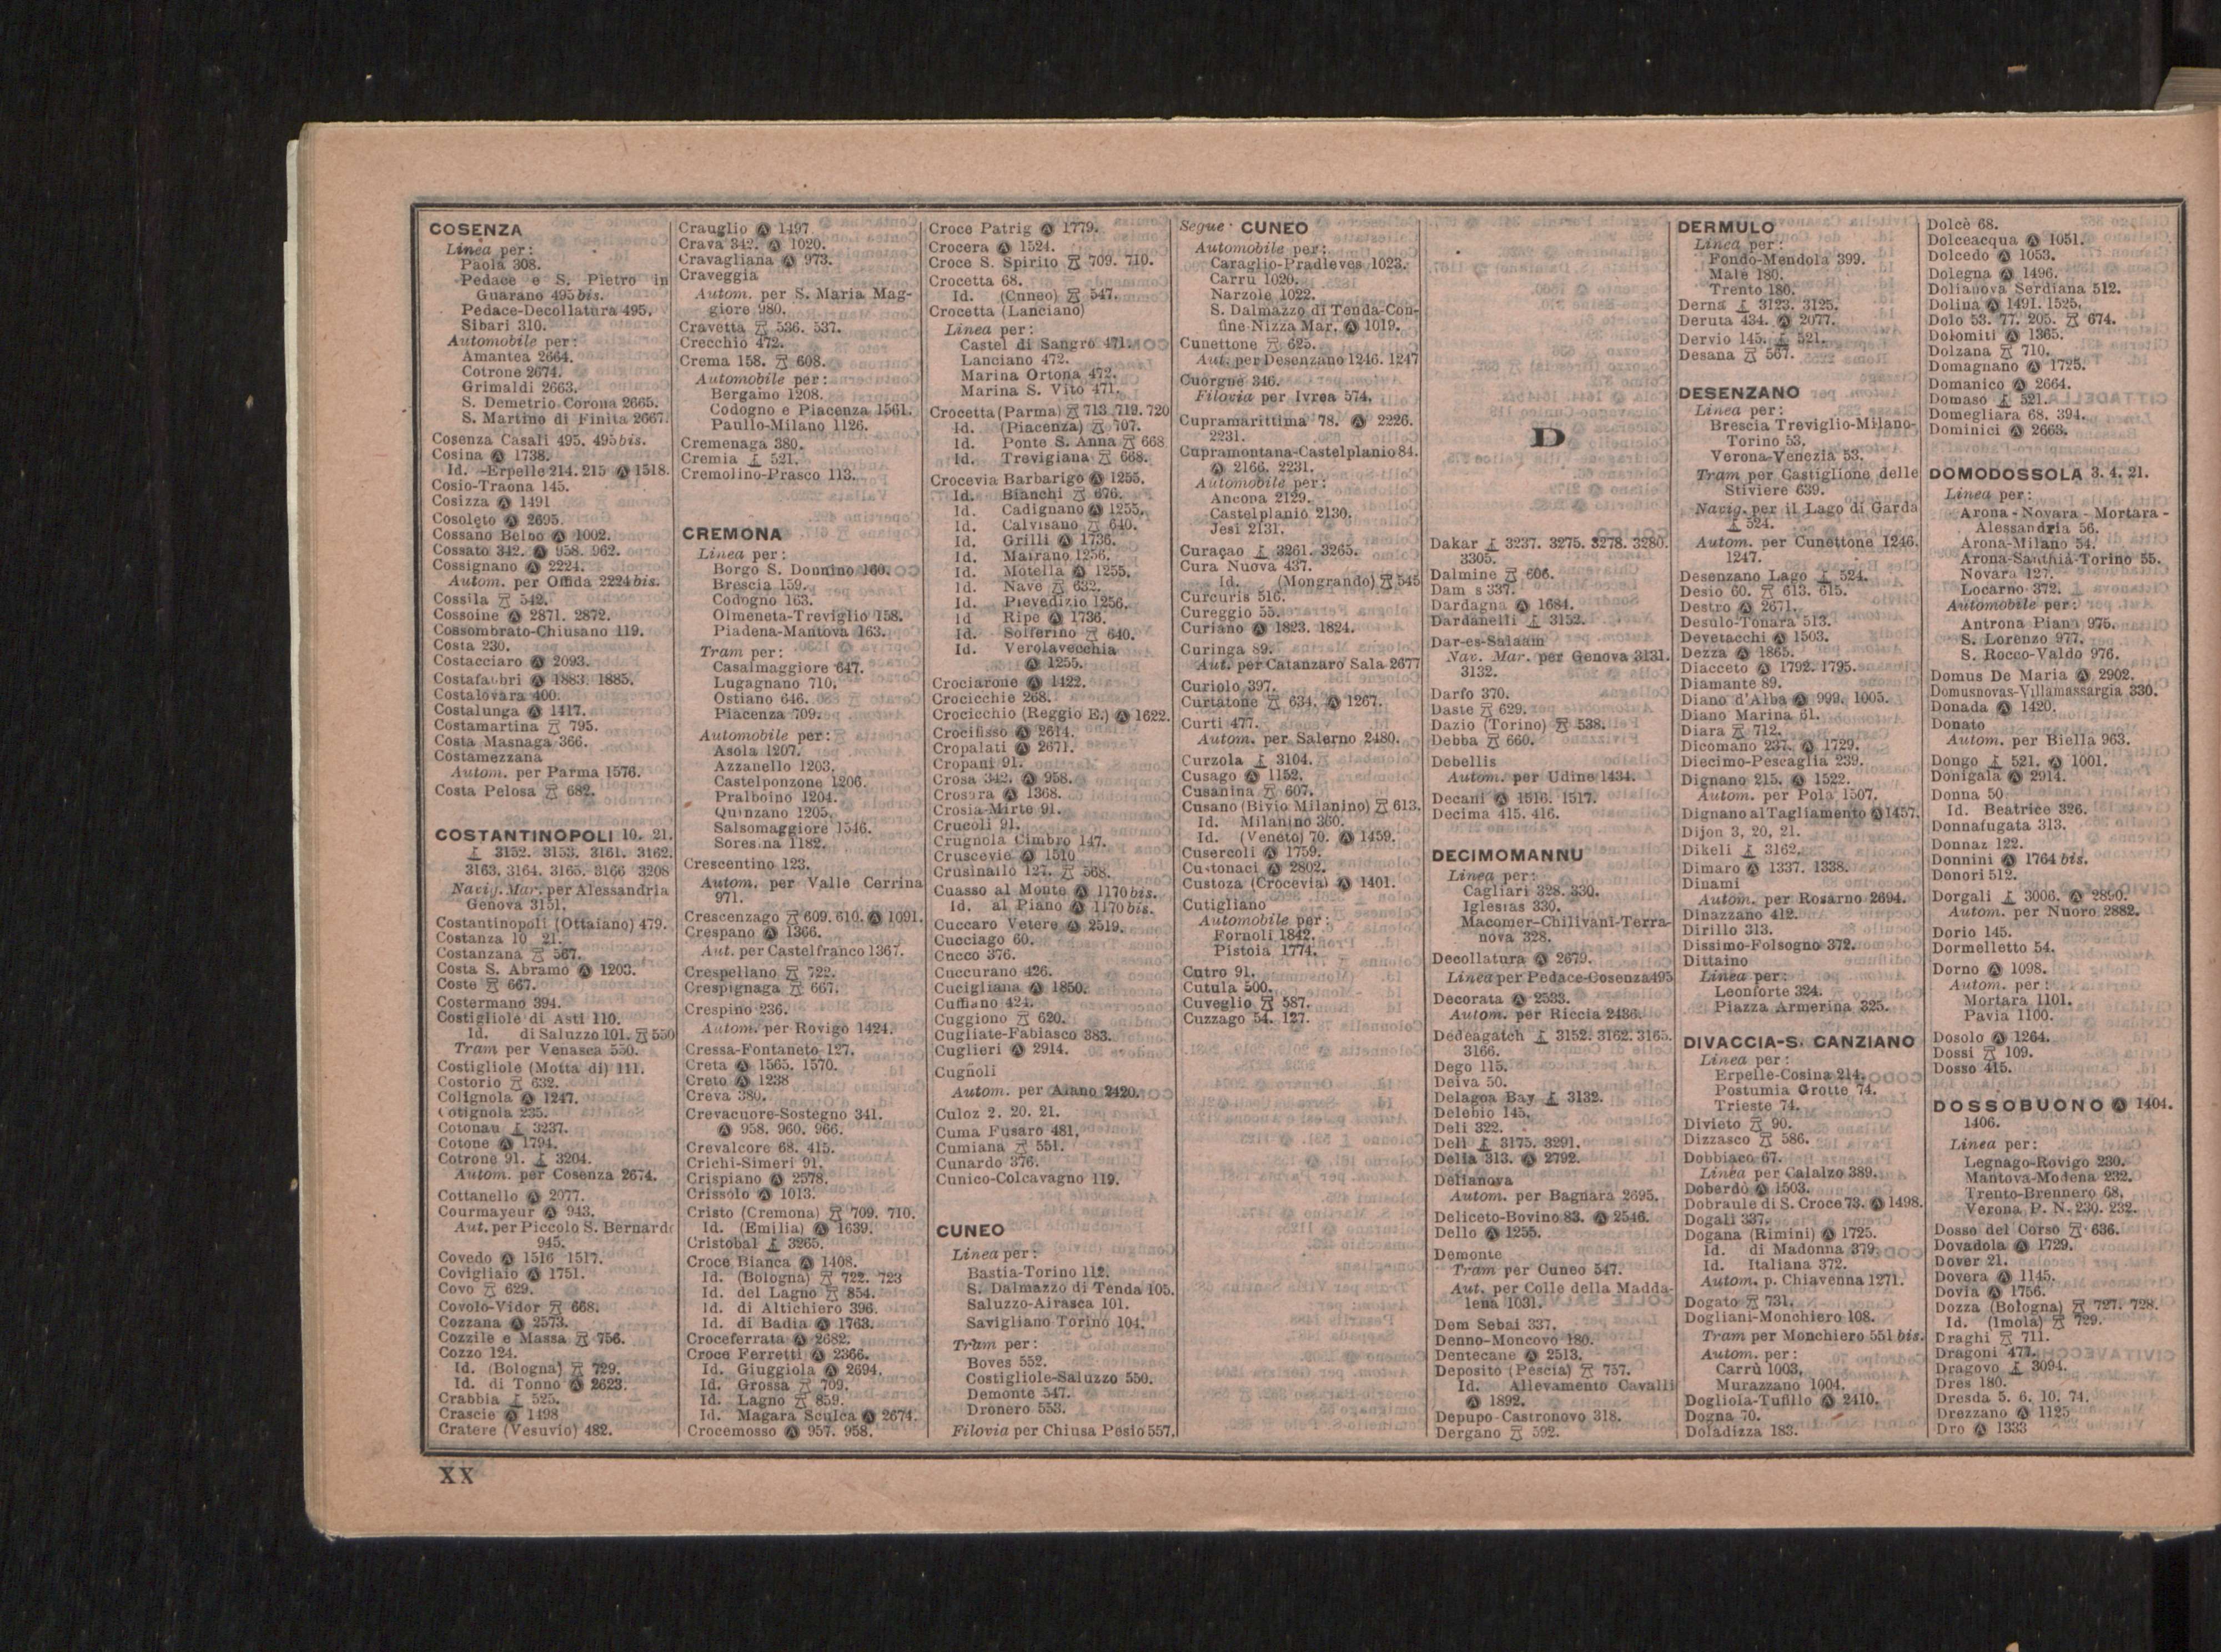 COSENZA
Linea per:
Paola 308.
Pedace e S. Pietro in
Guarano 495 bis.
Pedace-Decollatura 495.
Sibari 310.
Automobile per:
Amantea 2664.
Cotrone 2674.
Grimaldi 2663.
S. Demetrio Corona 2665.
S. Martino di Finita 2667.
Cosenza Casali 495. 495 bis.
Cosina Ⓐ 1738.
Id. -Erpelle 214. 215 Ⓐ 1518.
Cosio-Traona 145.
Cosizza Ⓐ 1491
Cosoleto Ⓐ 2695.
Cossano Belbo Ⓐ 1002.
Cossato 342. Ⓐ 958. 962.
Cossignano Ⓐ 2224.
Autom. per Offida 2224 bis.
Cossila 542.
Cossoine Ⓐ 2871. 2872.
Cossombrato-Chiusano 119.
Costa 230.
Costacciaro Ⓐ 2093.
Costafabbri Ⓐ 1883. 1885.
Costalovara 400.
Costalunga Ⓐ 1417.
Costamartina 795.
Costa Masnaga 366.
Costamezzana
Autom. per Parma 1576.
Costa Pelosa 682.
COSTANTINOPOLI 10. 21.
3152. 3153. 3161. 3162.
3163. 3164. 3165. 3166 3208
Navig. Mar. per Alessandria
Genova 3151.
Costantinopoli (Ottaiano) 479.
Costanza 10 21.
Costanzana 567.
Costa S. Abramo Ⓐ 1203.
Coste 667.
Costermano 394.
Costigliole di Asti 110.
Id. di Saluzzo 101. 550
Tram per Venasca 550.
Costigliole (Motta di) 111.
Costorio 632.
Cotignola Ⓐ 1247.
Cotignola 235.
Cotonau 3237.
Cotone Ⓐ 1794.
Cotrone 91. 3204.
Autom. per Cosenza 2674.
Cottanello Ⓐ 2077.
Courmayeur Ⓐ 943.
Aut. per Piccolo S. Bernardo
945.
Covedo Ⓐ 1516 1517.
Covigliaio Ⓐ 1751.
Covo 629.
Covolo-Vidor 668.
Cozzana Ⓐ 2573.
Cozzile e Massa 756.
Cozzo 124.
Id. (Bologna) 729.
Id. di Tonno Ⓐ 2623.
Crabbia 525.
Crascie Ⓐ 1498
Cratere (Vesuvio) 482.
Crauglio Ⓐ 1497
Crava 342. Ⓐ 1020.
Cravagliana Ⓐ 973.
Craveggia
Autom. per S. Maria Mag-
giore 980.
Cravetta 536. 537.
Crecchio 472.
Crema 158. 608.
Automobile per:
Bergamo 1208.
Codogno e Piacenza 1561.
Paullo-Milano 1126.
Cremenaga 380.
Cremia 521.
Cremolino-Prasco 113.
CREMONA
Linea per:
Borgo S. Donnino 160.
Brescia 159.
Codogno 163.
Olmeneta-Treviglio 158.
Piadena-Mantova 163.
Tram per:
Casalmaggiore 647.
Lugagnano 710.
Ostiano 646.
Piacenza 709.
Automobile per:
Asola 1207.
Azzanello 1203.
Castelponzone 1206.
Pralboino 1204.
Quinzano 1205.
Salsomaggiore 1546.
Soresina 1182.
Crescentino 123.
Autom. per Valle Cerrina
971.
Crescenzago 609. 610. Ⓐ 1091.
Crespano Ⓐ 1366.
Aut. per Castelfranco 1367.
Crespellano 722.
Crespignaga 667.
Crespino 236.
Autom. per Rovigo 1424.
Cressa-Fontaneto 127.
Creta Ⓐ 1565. 1570.
Creto Ⓐ 1238
Creva 380.
Crevacuore-Sostegno 341.
Ⓐ 958. 960. 966.
Crevalcore 68. 415.
Crichi-Simeri 91.
Crispiano Ⓐ 2578.
Crissolo Ⓐ 1013.
Cristo (Cremona) 709. 710.
Id. (Emilia) Ⓐ 1639.
Cristobal 3265.
Croce Bianca Ⓐ 1408.
Id. (Bologna) 722. 723
Id. del Lagno 854.
Id. di Altichiero 396.
Id. di Badia Ⓐ 1763.
Croceferrata Ⓐ 2682.
Croce Ferretti Ⓐ 2366.
Id. Giuggiola Ⓐ 2694.
Id. Grossa 709.
Id. Lagno 859.
Id. Magara Sculca Ⓐ 2674.
Crocemosso Ⓐ 957. 958.
Croce Patrig Ⓐ 1779.
Crocera Ⓐ 1524.
Croce S. Spirito 709. 710.
Crocetta 68.
Id. (Cuneo) 547.
Crocetta (Lanciano)
Linea per:
Castel di Sangro 471.
Lanciano 472.
Marina Ortona 472.
Marina S. Vito 471.
Crocetta (Parma) 713. 719. 720
Id. (Piacenza) 707.
Id. Ponte S. Anna 668
Id. Trevigiana 668.
Crocevia Barbarigo Ⓐ 1255.
Id. Bianchi 676.
Id. Cadignano Ⓐ 1255.
Id. Calvisano 640.
Id. Grilli Ⓐ 1736.
Id. Mairano 1256.
Id. Motella Ⓐ 1255.
Id. Nave 632.
Id. Pievedizio 1256.
Id Ripe Ⓐ 1736.
Id. Solferino 640.
Id. Verolavecchia
Ⓐ 1255.
Crociarone Ⓐ 1422.
Crocicchie 268.
Crocicchio (Reggio E.) Ⓐ 1622.
Crocifisso Ⓐ 2614.
Cropalati Ⓐ 2671.
Cropani 91.
Crosa 342. Ⓐ 958.
Crosara Ⓐ 1368.
Crosia-Mirto 91.
Crucoli 91.
Crugnola Cimbro 147.
Cruscevie Ⓐ 1510
Crusinallo 127. 568.
Cuasso al Monte Ⓐ 1170 bis.
Id. al Piano Ⓐ 1170 bis.
Cuccaro Vetere Ⓐ 2519.
Cucciago 60.
Cucco 376.
Cuccurano 426.
Cucigliana Ⓐ 1850.
Cuffiano 424.
Cuggiono 620.
Cugliate-Fabiasco 383.
Cuglieri Ⓐ 2914.
Cugnoli
Autom. per Alano 2420.
Culoz 2. 20. 21.
Cuma Fusaro 481.
Cumiana 551.
Cunardo 376.
Cunico-Colcavagno 119.
CUNEO
Linea per:
Bastia-Torino 112.
S. Dalmazzo di Tenda 105.
Saluzzo-Airasca 101.
Savigliano Torino 104.
Tram per:
Boves 552.
Costigliole-Saluzzo 550.
Demonte 547.
Dronero 553.
Filovia per Chiusa Pesio 557.
Segue CUNEO
Automobile per:
Caraglio-Pradleves 1023.
Carrù 1020.
Narzole 1022.
S. Dalmazzo di Tenda-Con-
fine-Nizza Mar. Ⓐ 1019.
Cunettone 625.
Aut. per Desenzano 1246. 1247
Cuorgnè 346.
Filovia per Ivrea 574.
Cupramarittima 78. Ⓐ 2226.
2231.
Cupramontana-Castelplanio 84.
Ⓐ 2166. 2231.
Automobile per:
Ancona 2129.
Castelplanio 2130.
Jesi 2131.
Curaçao 3261. 3265.
Cura Nuova 437.
Id. (Mongrando) 545
Curcuris 516.
Cureggio 55.
Curiano Ⓐ 1823. 1824.
Curinga 89.
Aut. per Catanzaro Sala 2677
Curiolo 397.
Curtatone 634. Ⓐ 1267.
Curti 477.
Autom. per Salerno 2480.
Curzola 3104.
Cusago Ⓐ 1152.
Cusanina 607.
Cusano (Bivio Milanino) 613.
Id. Milanino 360.
Id. (Veneto) 70. Ⓐ 1459.
Cusercoli Ⓐ 1759.
Custonaci Ⓐ 2802.
Custoza (Crocevia) Ⓐ 1401.
Cutigliano
Automobile per:
Fornoli 1842.
Pistoia 1774.
Cutro 91.
Cutula 500.
Cuveglio 587.
Cuzzago 54. 127.
D
Dakar 3237. 3275. 3278. 3280.
3305.
Dalmine 606.
Dam s 337.
Dardagna Ⓐ 1684.
Dardanelli 3152.
Dar-es-Salaam
Nav. Mar. per Genova 3131.
3132.
Darfo 370.
Daste 629.
Dazio (Torino) 538.
Debba 660.
Debellis
Autom. per Udine 1434.
Decani Ⓐ 1516. 1517.
Decima 415. 416.
DECIMOMANNU
Linea per:
Cagliari 328. 330.
Iglesias 330.
Macomer-Chilivani-Terra-
nova 328.
Decollatura Ⓐ 2679.
Linea per Pedace-Cosenza 495
Decorata Ⓐ 2533.
Autom. per Riccia 2436.
Dedeagatch 3152. 3162. 3165.
3166.
Dego 115.
Deiva 50.
Delagoa Bay 3132.
Delebio 145.
Deli 322.
Deli 3175. 3291.
Delia 313. Ⓐ 2792.
Delianova
Autom. per Bagnara 2695.
Deliceto-Bovino 83. Ⓐ 2546.
Dello Ⓐ 1255.
Demonte
Tram per Cuneo 547.
Aut. per Colle della Madda-
lena 1031.
Dem Sebai 337.
Denno-Moncovo 180.
Dentecane Ⓐ 2513.
Deposito (Pescia) 757.
Id. Allevamento Cavalli
Ⓐ 1892.
Depupo-Castronovo 318.
Dergano 592.
DERMULO
Linea per:
Fondo-Mendola 399.
Malè 180.
Trento 180.
Derna 3123. 3125.
Deruta 434. Ⓐ 2077.
Dervio 145. 521.
Desana 567.
DESENZANO
Linea per:
Brescia Treviglio-Milano-
Torino 53.
Verona-Venezia 53.
Tram per Castiglione delle
Stiviere 639.
Navig. per il Lago di Garda
524.
Autom. per Cunettone 1246.
1247.
Desenzano Lago 524.
Desio 60. 613. 615.
Destro Ⓐ 2671.
Desulo-Tonara 513.
Devetacchi Ⓐ 1503.
Dezza Ⓐ 1865.
Diacceto Ⓐ 1792. 1795.
Diamante 89.
Diano d'Alba Ⓐ 999. 1005.
Diano Marina 61.
Diara 712.
Dicomano 237. Ⓐ 1729.
Diecimo-Pescaglia 239.
Dignano 215. Ⓐ 1522.
Autom. per Pola 1507.
Dignano al Tagliamento Ⓐ 1457.
Dijon 3, 20, 21.
Dikeli 3162.
Dimaro Ⓐ 1337. 1338.
Dinami
Autom. per Rosarno 2694.
Dinazzano 412.
Dirillo 313.
Dissimo-Folsogno 372.
Dittaino
Linea per:
Leonforte 324.
Piazza Armerina 325.
DIVACCIA-S. CANZIANO
Linea per:
Erpelle-Cosina 214.
Postumia Grotte 74.
Trieste 74.
Divieto 90.
Dizzasco 586.
Dobbiaco 67.
Linea per Calalzo 389.
Doberdò Ⓐ 1503.
Dobraule di S. Croce 73. Ⓐ 1498.
Dogali 337.
Dogana (Rimini) Ⓐ 1725.
Id. di Madonna 379.
Id. Italiana 372.
Autom. p. Chiavenna 1271.
Dogato 731.
Dogliani-Monchiero 108.
Tram per Monchiero 551 bis.
Autom. per:
Carrù 1003.
Murazzano 1004.
Dogliola-Tufillo Ⓐ 2410.
Dogna 70.
Doladizza 183.
Dolcè 68.
Dolceacqua Ⓐ 1051.
Dolcedo Ⓐ 1053.
Dolegna Ⓐ 1496.
Dolianova Serdiana 512.
Dolina Ⓐ 1491. 1525.
Dolo 53. 77. 205. 674.
Dolomiti Ⓐ 1365.
Dolzana 710.
Domagnano Ⓐ 1725.
Domanico Ⓐ 2664.
Domaso 521.
Domegliara 68. 394.
Dominici Ⓐ 2663.
DOMODOSSOLA 3. 4. 21.
Linea per:
Arona - Novara - Mortara -
Alessandria 56.
Arona-Milano 54.
Arona-Santhià-Torino 55.
Novara 127.
Locarno 372.
Automobile per:
Antrona Piana 975.
S. Lorenzo 977.
S. Rocco-Valdo 976.
Domus De Maria Ⓐ 2902.
Domusnovas-Villamassargia 330.
Donada Ⓐ 1420.
Donato
Autom. per Biella 963.
Dongo 521. Ⓐ 1001.
Donigala Ⓐ 2914.
Donna 50
Id. Beatrice 326.
Donnafugata 313.
Donnaz 122.
Donnini Ⓐ 1764 bis.
Donori 512.
Dorgali 3006. Ⓐ 2890.
Autom. per Nuoro 2882.
Dorio 145.
Dormelletto 54.
Dorno Ⓐ 1098.
Autom. per:
Mortara 1101.
Pavia 1100.
Dosolo Ⓐ 1264.
Dossi 109.
Dosso 415.
DOSSOBUONO Ⓐ 1404.
1406.
Linea per:
Legnago-Rovigo 230.
Mantova-Modena 232.
Trento-Brennero 68.
Verona P. N. 230. 232.
Dosso del Corso 636.
Dovadola Ⓐ 1729.
Dover 21.
Dovera Ⓐ 1145.
Dovia Ⓐ 1756.
Dozza (Bologna) 727. 728.
Id. (Imola) 729.
Draghi 711.
Dragoni 477.
Dragovo 3094.
Dres 180.
Dresda 5. 6. 10. 74.
Drezzano Ⓐ 1125
Dro Ⓐ 1333
XX